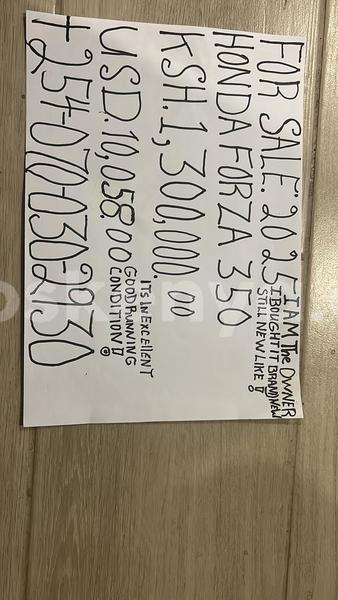 FOR SALE: 2025
I AM The OWNER
I BOUGHT IT BRAND NEW
STILL NEW LIKE!
HONDA FORZA 350
KSH.1,300,000.00
IT'S IN EXCEllENT
GOOD RUNNING
CONDITION!!
USD.10,058.00
+254-070-030-2930